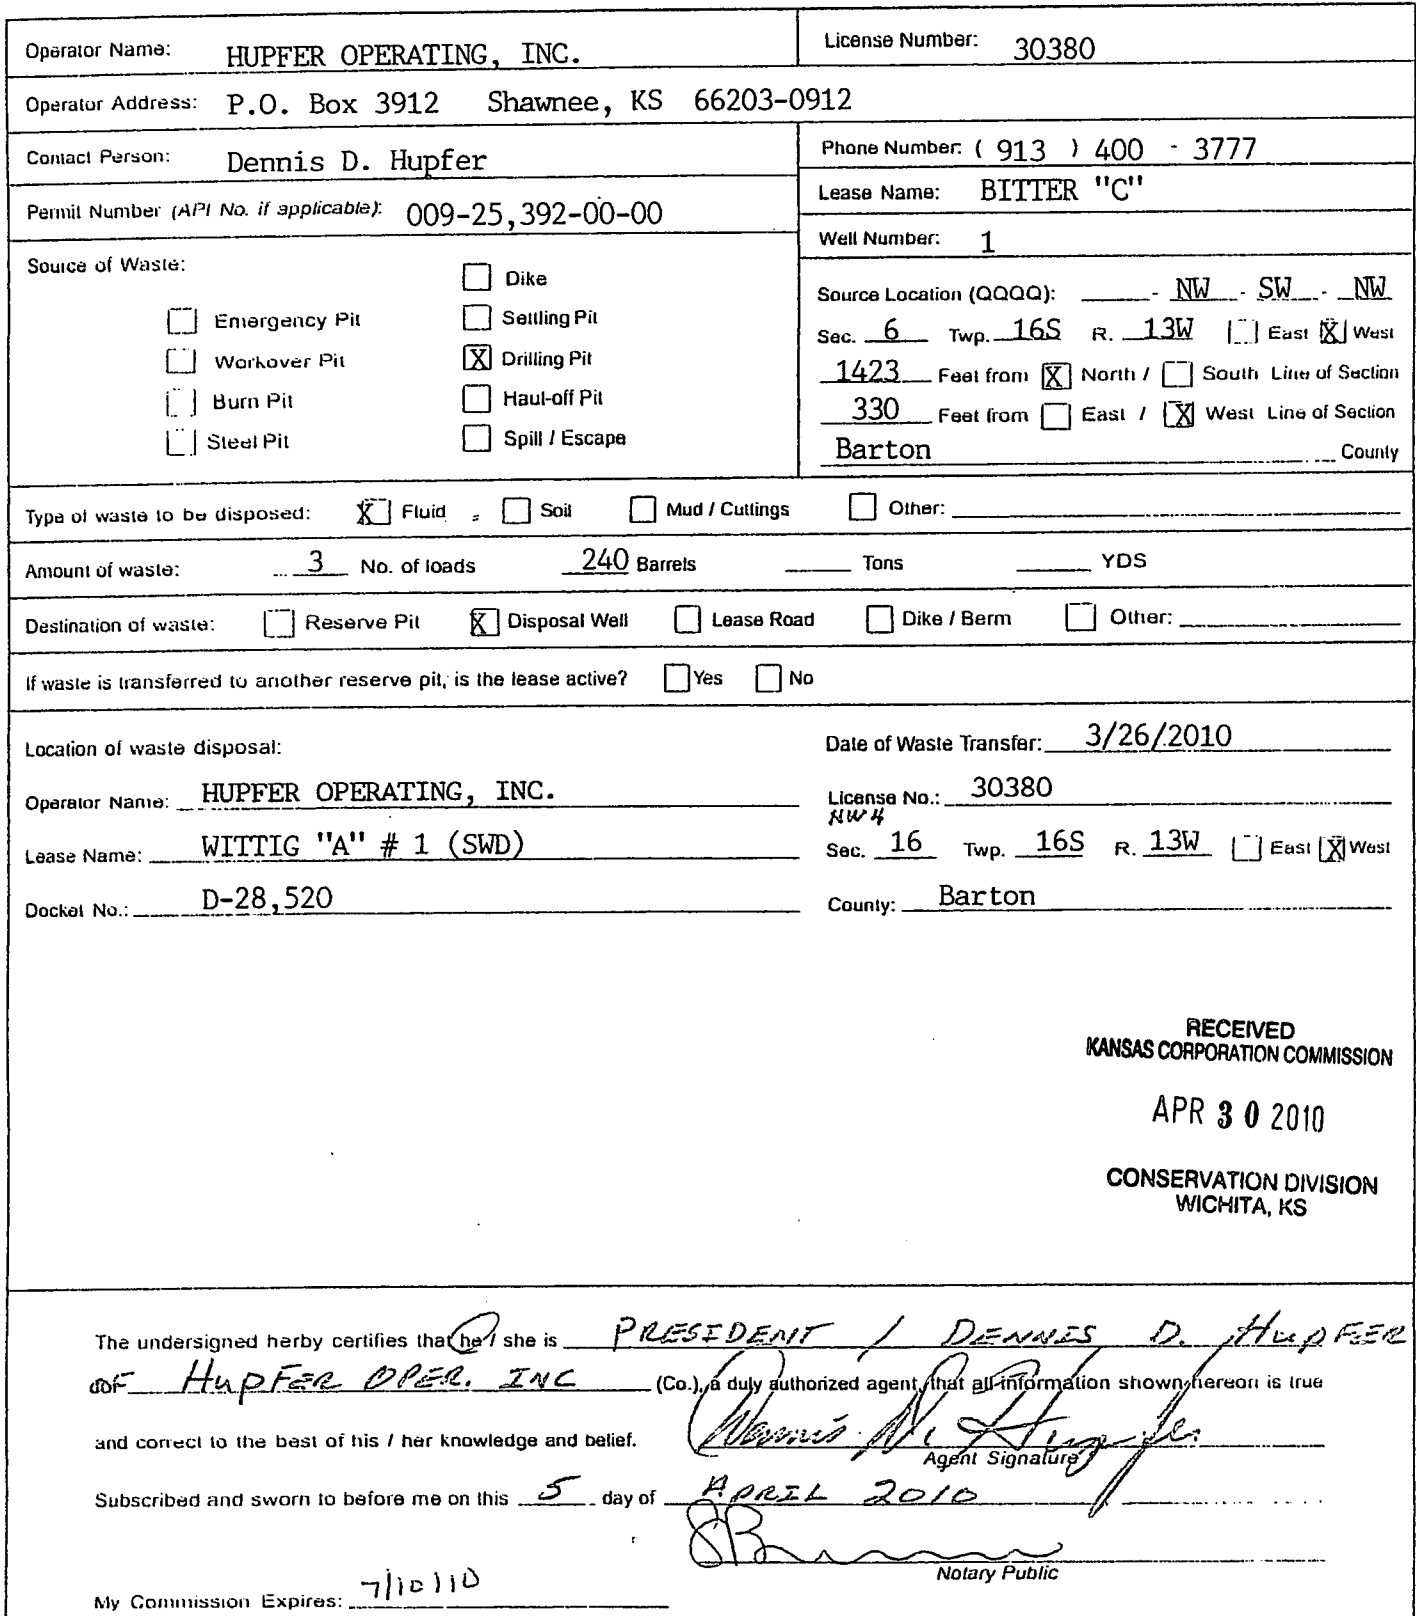 Operator Name: HUPFER OPERATING, INC. License Number: 30380
Operator Address: P.O. Box 3912 Shawnee, KS 66203-0912
Contact Person: Dennis D. Hupfer Phone Number: ( 913 ) 400 - 3777
Lease Name: BITTER "C"
Permit Number (API No. if applicable): 009-25,392-00-00
Well Number: 1
Source of Waste:
Dike
Emergency Pit Settling Pit
Workover Pit X Drilling Pit
Burn Pit Haul-off Pit
Steel Pit Spill / Escape
Source Location (QQQQ): - NW - SW - NW
Sec. 6 Twp. 16S R. 13W East X West
1423 Feet from X North / South Line of Section
330 Feet from East / X West Line of Section
Barton County
Type of waste to be disposed: X Fluid Soil Mud / Cuttings Other:
Amount of waste: 3 No. of loads 240 Barrels Tons YDS
Destination of waste: Reserve Pit X Disposal Well Lease Road Dike / Berm Other:
If waste is transferred to another reserve pit, is the lease active? Yes No
Location of waste disposal: Date of Waste Transfer: 3/26/2010
Operator Name: HUPFER OPERATING, INC. License No.: 30380
NW4
Lease Name: WITTIG "A" # 1 (SWD) Sec. 16 Twp. 16S R. 13W East X West
Docket No.: D-28,520 County: Barton
RECEIVED
KANSAS CORPORATION COMMISSION
APR 30 2010
CONSERVATION DIVISION
WICHITA, KS
The undersigned herby certifies that he / she is PRESIDENT / DENNIS D. HUPFER
OF HUPFER OPER. INC (Co.), a duly authorized agent, that all information shown hereon is true
and correct to the best of his / her knowledge and belief. Dennis D. Hupfer
Agent Signature
Subscribed and sworn to before me on this 5 day of APRIL 2010
Notary Public
My Commission Expires: 7/10/10